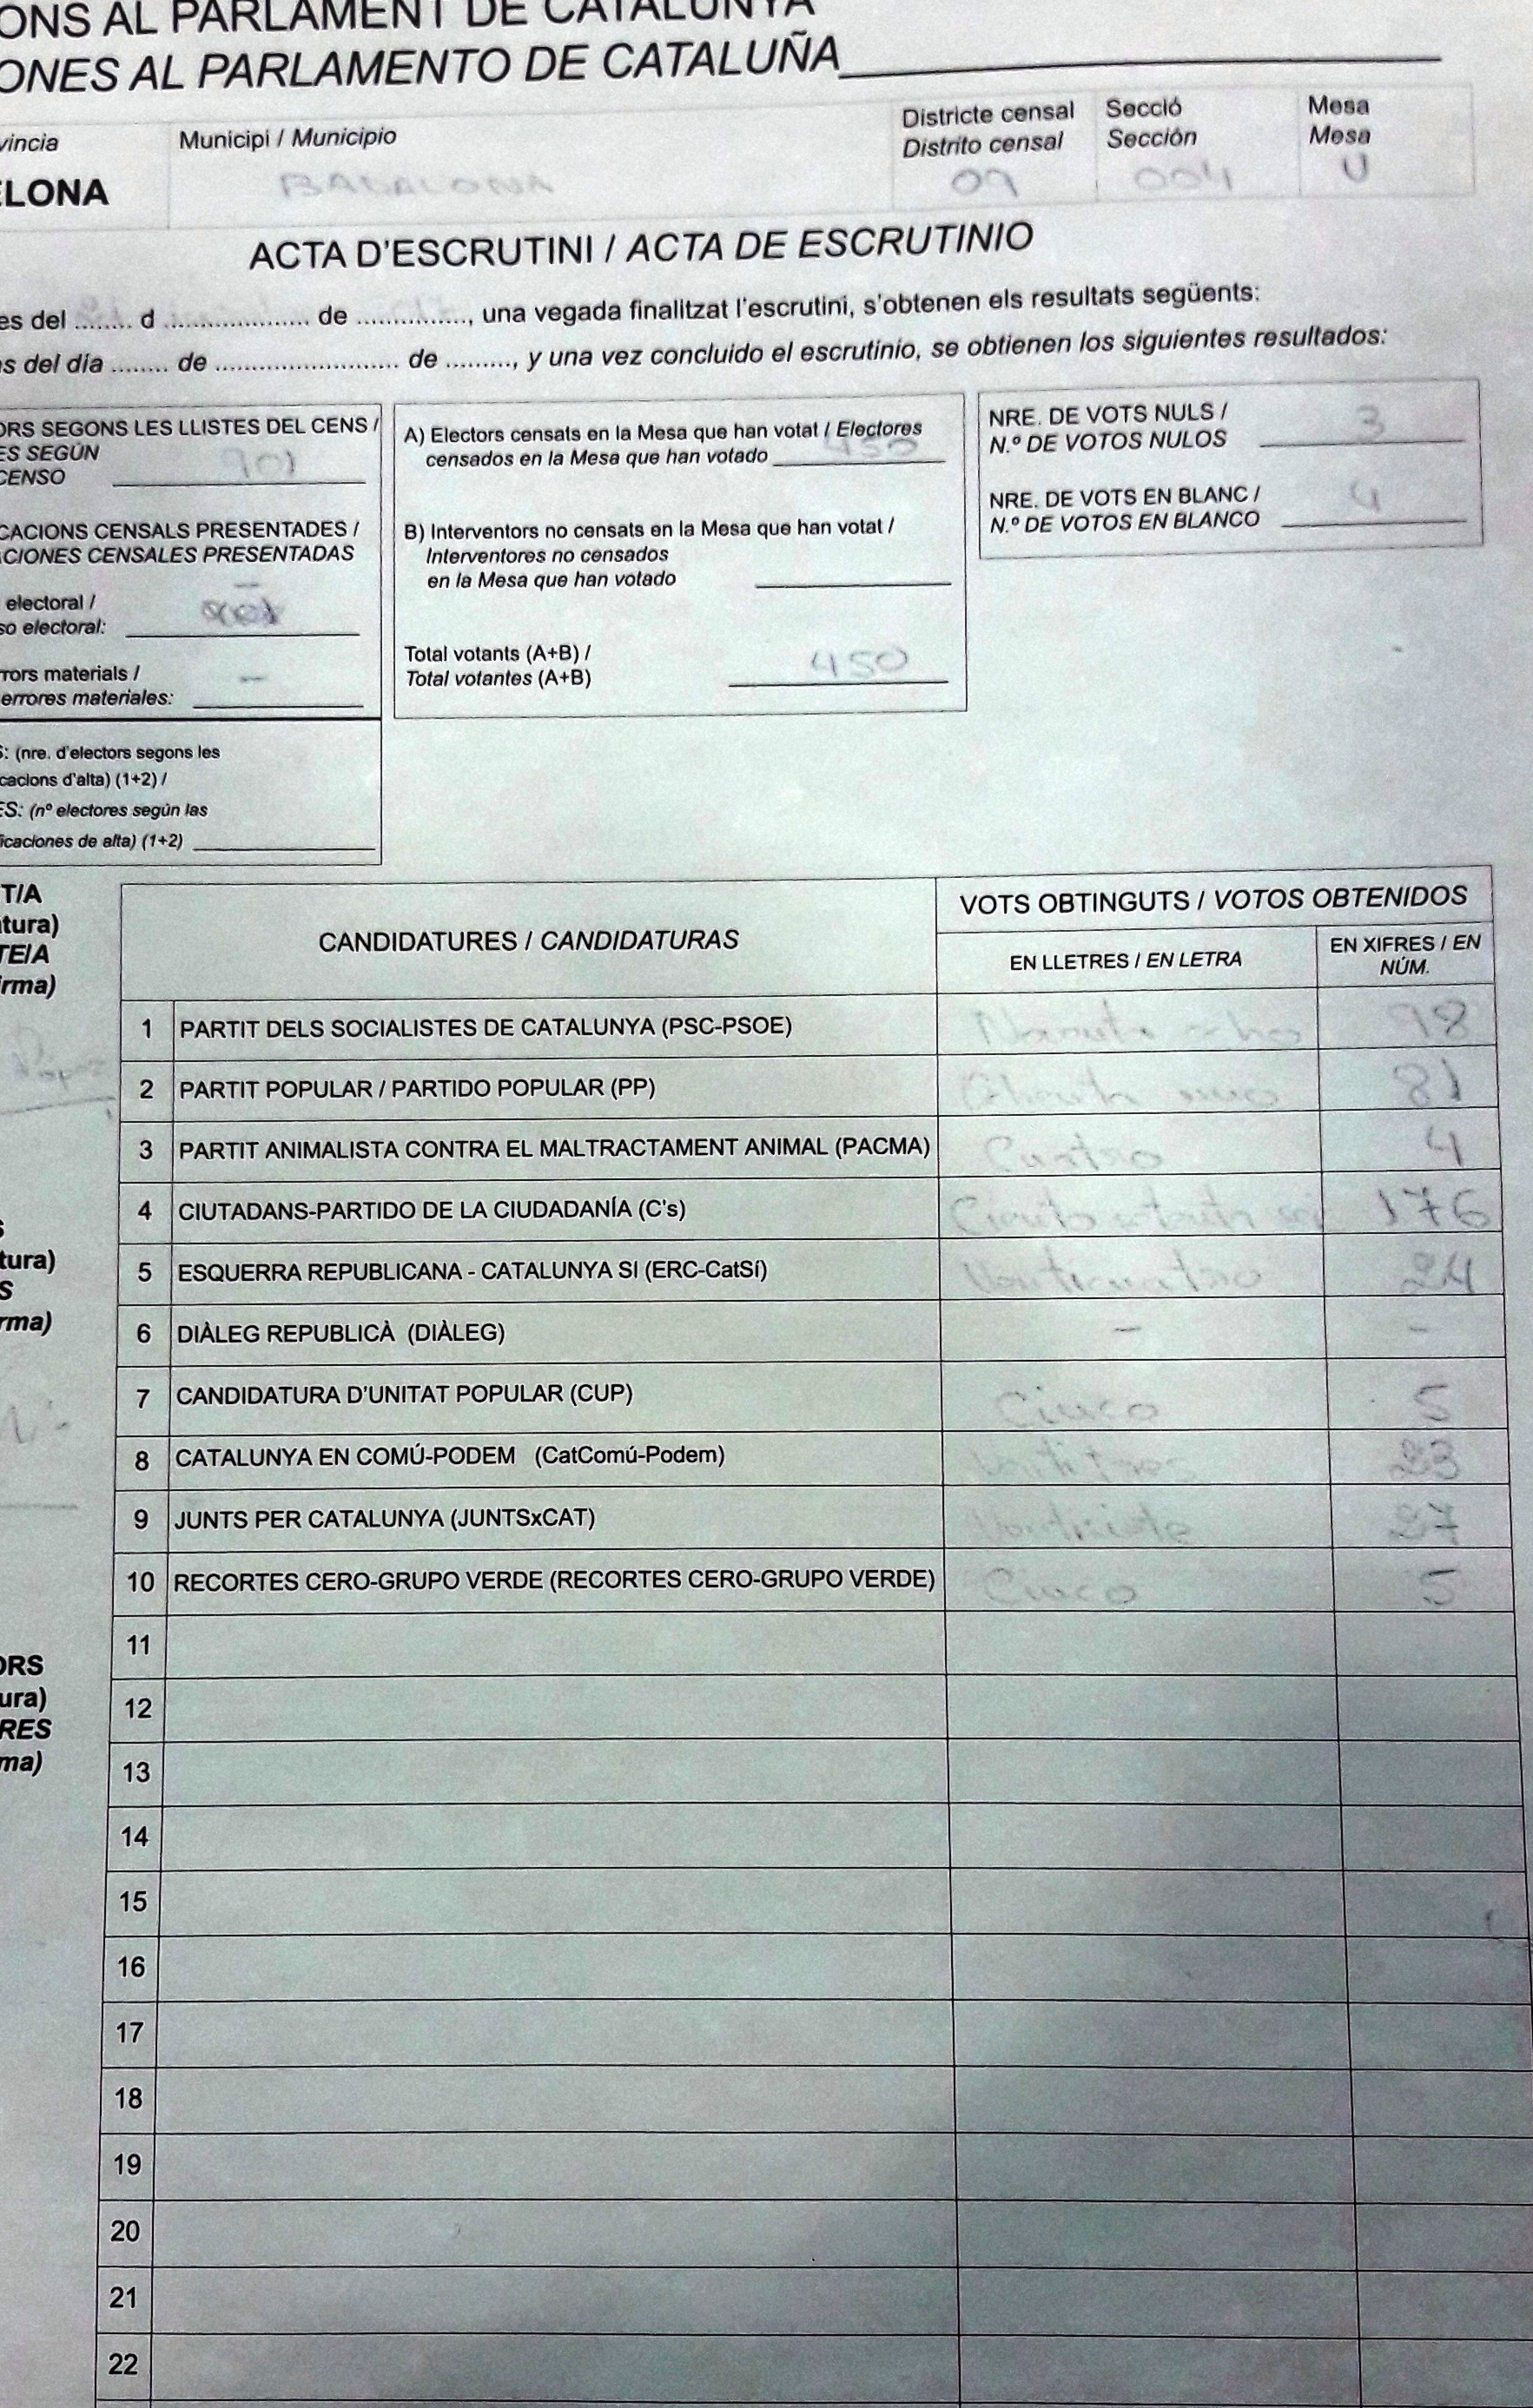 ONS AL PARLAMENT DE CATALUNYA
ONES AL PARLAMENTO DE CATALUÑA
vincia Municipi / Municipio Districte censal Secció Mesa
Distrito censal Sección Mesa
ELONA BADALONA 09 004 U
ACTA D'ESCRUTINI / ACTA DE ESCRUTINIO
es del ........ d .................... de ..............., una vegada finalitzat l'escrutini, s'obtenen els resultats següents:
s del día ........ de ......................... de ........., y una vez concluido el escrutinio, se obtienen los siguientes resultados:
ORS SEGONS LES LLISTES DEL CENS /
ES SEGÚN
CENSO 701
CACIONS CENSALS PRESENTADES /
ACIONES CENSALES PRESENTADAS
electoral /
so electoral:
rrors materials /
errores materiales: –
S: (nre. d'electors segons les
cacions d'alta) (1+2) /
ES: (nº electores según las
ficaciones de alta) (1+2)
A) Electors censats en la Mesa que han votat / Electores
censados en la Mesa que han votado 450
B) Interventors no censats en la Mesa que han votat /
Interventores no censados
en la Mesa que han votado
Total votants (A+B) /
Total votantes (A+B) 450
NRE. DE VOTS NULS /
N.º DE VOTOS NULOS 3
NRE. DE VOTS EN BLANC /
N.º DE VOTOS EN BLANCO 4
T/A
atura)
TE/A
irma)
CANDIDATURES / CANDIDATURAS VOTS OBTINGUTS / VOTOS OBTENIDOS
EN LLETRES / EN LETRA EN XIFRES / EN
NÚM.
1 PARTIT DELS SOCIALISTES DE CATALUNYA (PSC-PSOE) Noventa ocho 98
2 PARTIT POPULAR / PARTIDO POPULAR (PP) Ochenta uno 81
3 PARTIT ANIMALISTA CONTRA EL MALTRACTAMENT ANIMAL (PACMA) Cuatro 4
4 CIUTADANS-PARTIDO DE LA CIUDADANÍA (C's) Ciento setenta seis 176
5 ESQUERRA REPUBLICANA - CATALUNYA SI (ERC-CatSí) Venticuatro 24
6 DIÀLEG REPUBLICÀ (DIÀLEG) – –
7 CANDIDATURA D'UNITAT POPULAR (CUP) Cinco 5
8 CATALUNYA EN COMÚ-PODEM (CatComú-Podem) Ventitres 23
9 JUNTS PER CATALUNYA (JUNTSxCAT) Ventisiete 27
10 RECORTES CERO-GRUPO VERDE (RECORTES CERO-GRUPO VERDE) Cinco 5
S
tura)
S
rma)
ORS
ura)
RES
ma)
11
12
13
14
15
16
17
18
19
20
21
22